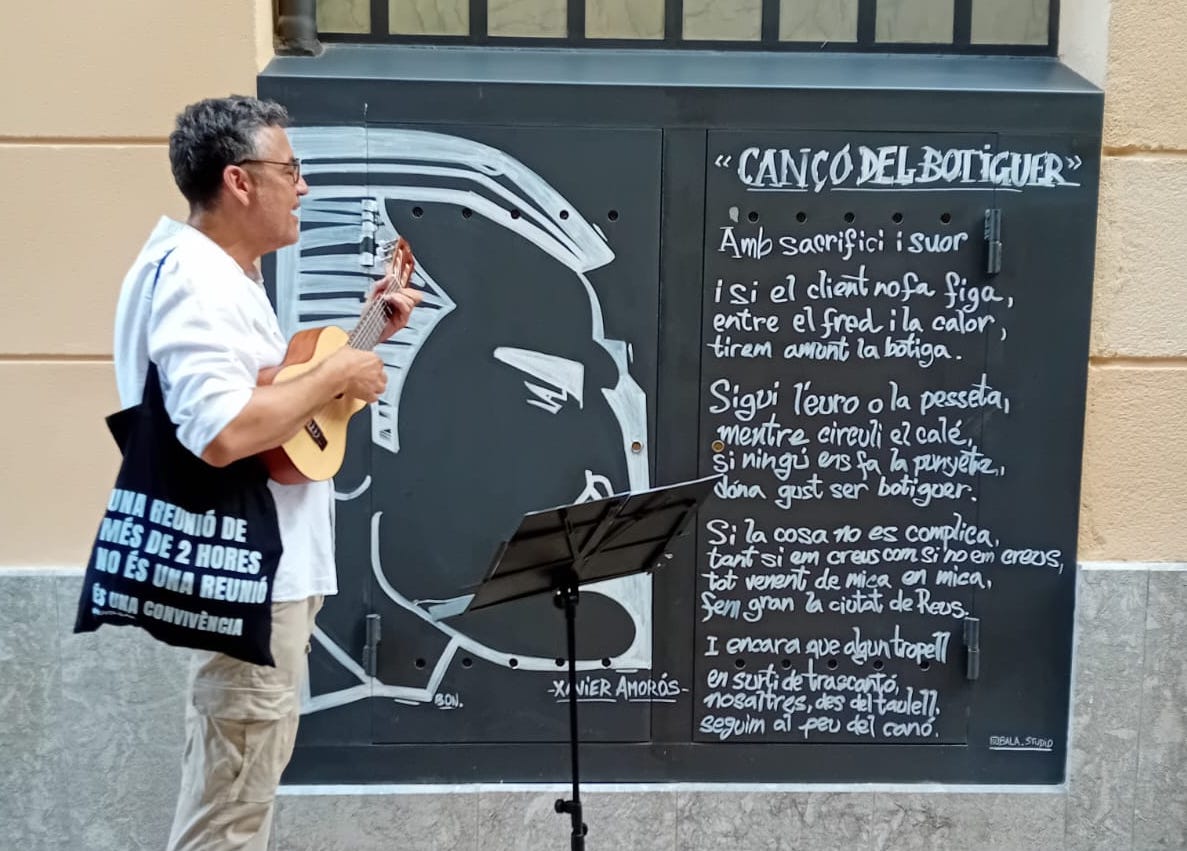 "CANÇÓ DEL BOTIGUER"
Amb sacrifici i suor
i si el client no fa figa,
entre el fred i la calor,
tirem amunt la botiga.
Sigui l'euro o la pesseta,
mentre circuli el calé,
si ningú ens fa la punyeta,
dóna gust ser botiguer.
Si la cosa no es complica,
tant si em creus com si no em creus,
tot venent de mica en mica,
fem gran la ciutat de Reus.
I encara que algun tropell
en surti de trascantó,
nosaltres, des del taulell,
seguim al peu del canó.
-XAVIER AMORÓS-
BON.
@BALA_STUDIO
UNA REUNIÓ DE
MÉS DE 2 HORES
NO ÉS UNA REUNIÓ
ÉS UNA CONVIVÈNCIA